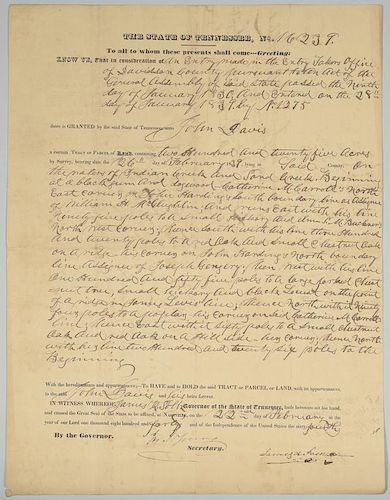 THE STATE OF TENNESSEE, No. 16239.
To all to whom these presents shall come—Greeting:
KNOW YE, That in consideration of An Entry made in the Entry Takers Office
of Davidson County pursuant to an Act of the
General Assembly of Said State passed the Ninth
day of January 1830, and Entered on the 28th
day of January 1839 by No 1215
there is GRANTED by the said State of Tennessee, unto
John Davis
A certain TRACT or PARCEL of LAND, containing Two Hundred and twenty five Acres
by Survey, bearing date the 26th day of February lying in Said County, On
the waters of Indian Creek and Sand Creek, Beginning
at a black gum and dogwood Catherine McGarrock's North
East corner, in John Harding's South boundary line as Assignee
of William H. McLaughlin and runs East with his line
Ninety five poles to a Small
North West Corner, thence South with his line three Hundred
And twenty poles to a red Oak and Small Chestnut Oak
on a ridge his corner on John Harding's North boundary
line Assignee of Joseph thence West with his line
One Hundred and fifty five poles to a large forked Chest
nut tree, Small Hickory and black on the point
of a ridge in James line, thence North with it Ninety
four poles to a poplar, his corner on Said Catherine McGarrock's
line, thence East with it Sixty poles to a Small Chestnut
Oak and red Oak on a Hill side her corner, thence North
with his line two Hundred and twenty six poles to the
Beginning
With the hereditaments and appurtenances.—To HAVE and to HOLD the said TRACT or PARCEL of LAND, with its appurtenances,
to the said John Davis and his heirs forever.
IN WITNESS WHEREOF, James K. Polk Governor of the State of Tennessee, hath hereunto set his hand,
and caused the Great Seal of the State to be affixed, at Nashville, on the 22nd day of February in the
year of our Lord one thousand eight hundred and forty and of the Independence of the United States the sixty fourth
By the Governor.
Secretary.